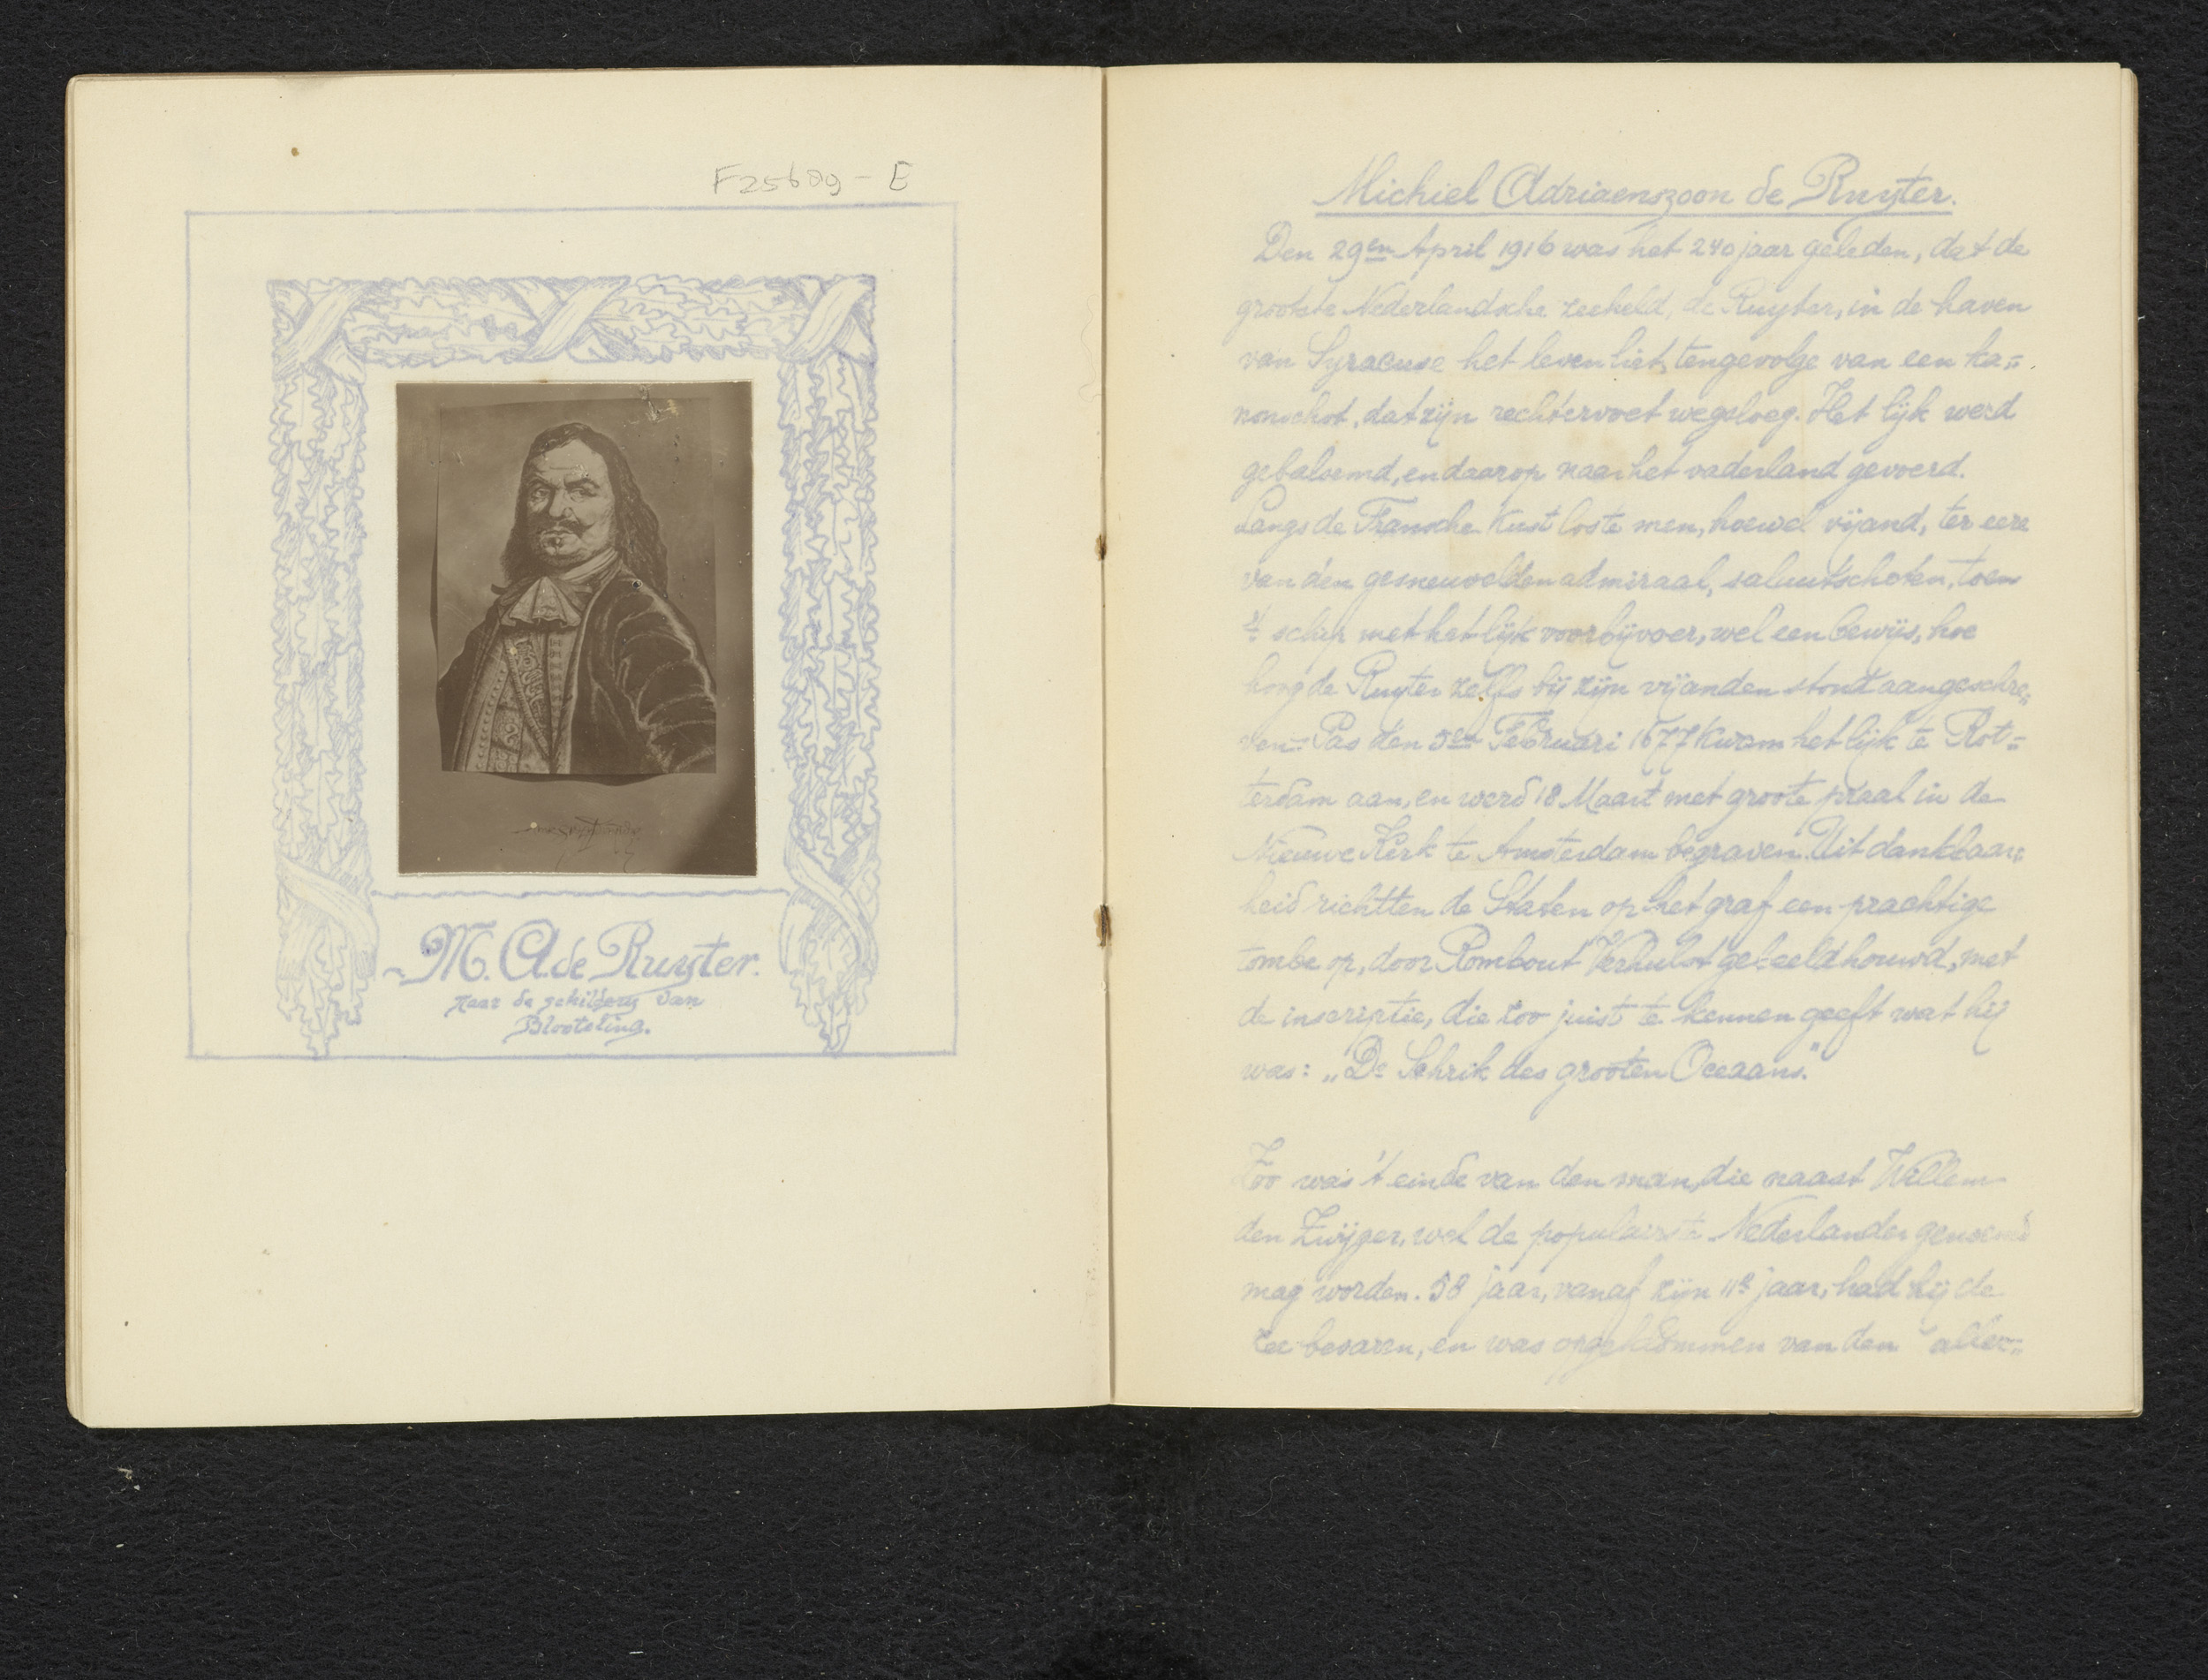 F25689 - E
M. A. de Ruyter.
naar de schilderij van
Blooteling.
Michiel Adriaenszoon de Ruyter.
Den 29en April 1916 was het 240 jaar geleden, dat de
grootste Nederlandsche zeeheld, de Ruyter, in de haven
van Syracuse het leven liet, tengevolge van een ka„
nonschot, dat zijn rechtervoet wegsloeg. Het lijk werd
gebalsemd, en daarop naar het vaderland gevoerd.
Langs de Fransche Kust loste men, hoewel vijand, ter eere
van den gesneuvelden admiraal, saluutschoten, toen
't schip met het lijk voorbijvoer, wel een bewijs, hoe
hoog de Ruyter zelfs bij zijn vijanden stond aangeschre„
ven. Pas den 5en Februari 1677 kwam het lijk te Rot=
terdam aan, en werd 18 Maart met groote praal in de
Nieuwe Kerk te Amsterdam begraven. Uit dankbaar„
heid richtten de Staten op het graf een prachtige
tombe op, door Rombout Verhulst gebeeldhouwd, met
de inscriptie, die zoo juist te kennen geeft wat hij
was: „De Schrik des grooten Oceaans."
Zoo was 't einde van den man, die naast Willem
den Zwijger, wel de populairste Nederlander genoemd
mag worden. 58 jaar, vanaf zijn 11e jaar, had hij de
zee bevaren, en was opgeklommen van den aller=